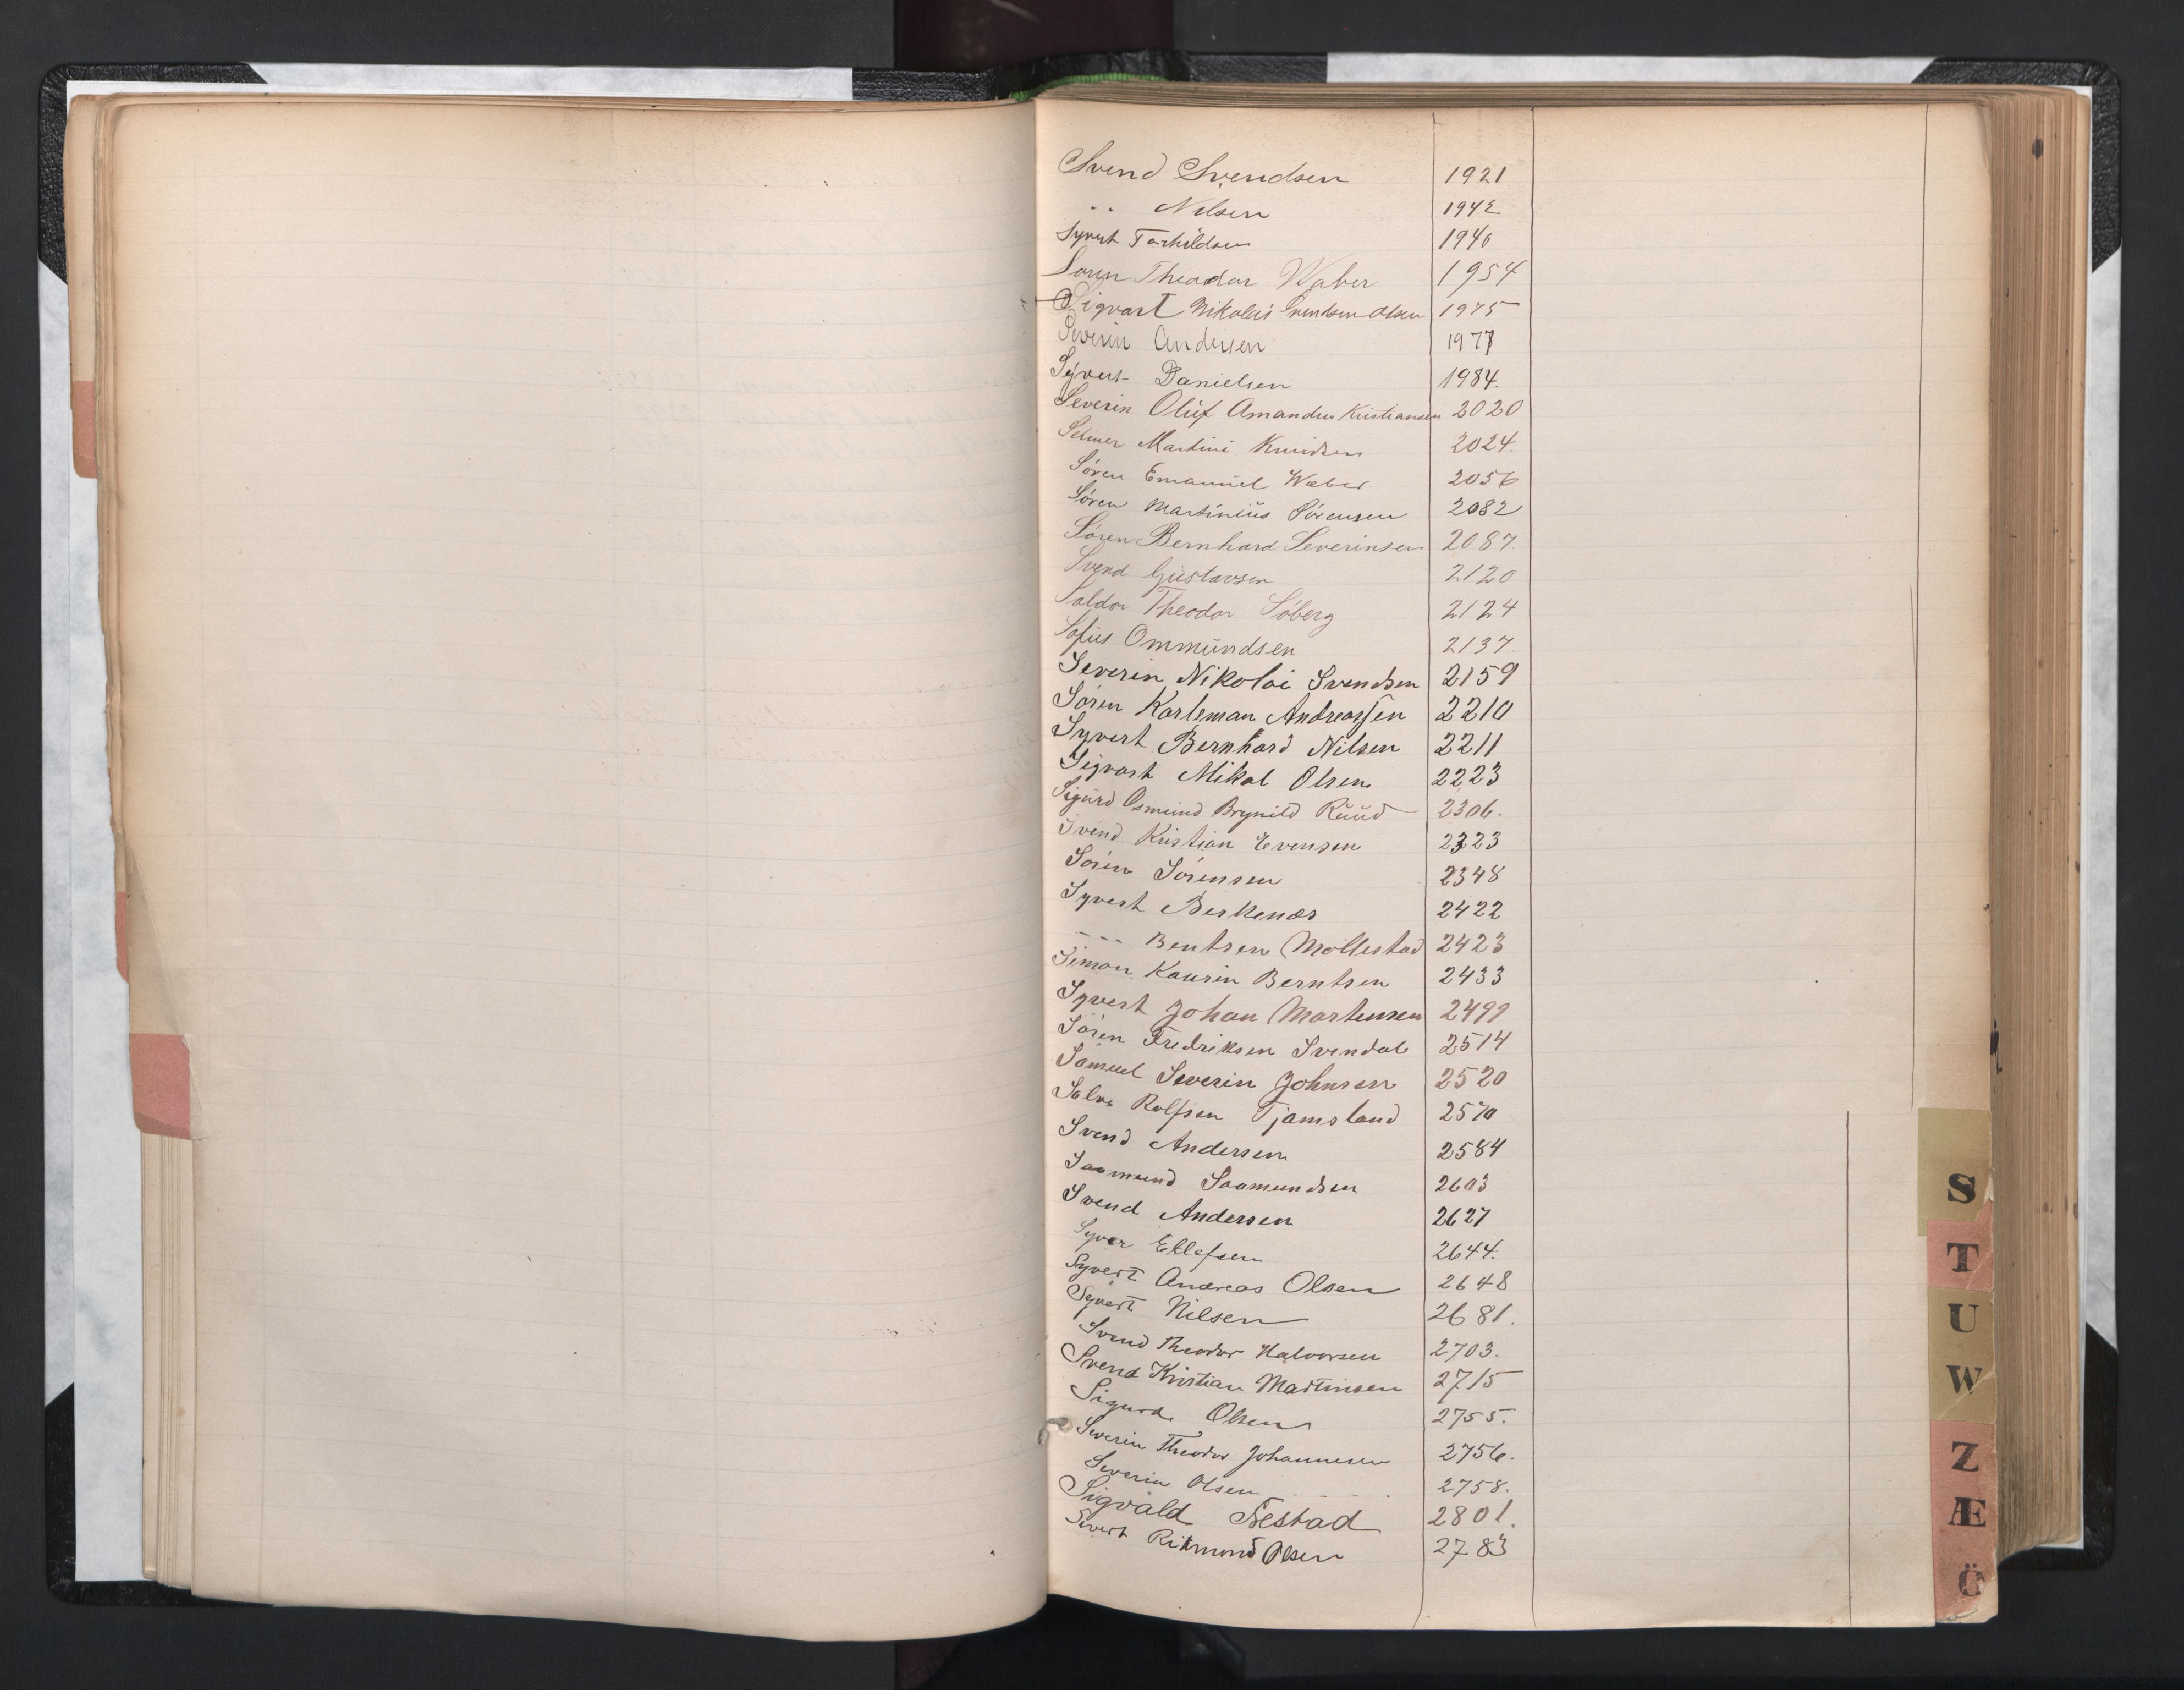 Svend Svendsen 1921
" Nilsen 1942
Syvert Torkildsen 1946
Søren Theodor Waber 1954
Sigvart Nikolai Svendsen Olsen 1975
Severin Andersen 1977
Syvert Danielsen 1984.
Severin Oluf Amandus Kristiansen 2020
Selmer Martini Knudsen 2024.
Søren Emanuel Waber 2056
Søren Martinius Sørensen 2082
Søren Bernhard Severinsen 2087.
Svend Gustavsen 2120
Saldor Theodor Søberg 2124
Sofus Ommundsen 2137.
Severin Nikolai Svendsen 2159
Søren Karleman Andreassen 2210
Syvert Bernhard Nilsen 2211
Sigvart Mikal Olsen 2223
Sigurd Osmund Brynild Ruud 2306.
Svend Kristian Evensen 2323
Søren Sørensen 2348
Syvert Berkenæs 2422
--- Bentsen Mollestad 2423
Simon Kaurin Berntsen 2433
Syvert Johan Martensen 2499
Søren Fredriksen Svendal 2514
Samuel Severin Johnsen 2520
Salve Rolfsen Tjamsland 2570
Svend Andersen 2584
Saamund Saamundsen 2603
Svend Andersen 2627
Syver Ellefsen 2644.
Syvert Andreas Olsen 2648
Syvert Nilsen 2681.
Svend Theodor Halvorsen 2703.
Svend Kristian Martinsen 2715
Sigurd Olsen 2755.
Severin Theodor Johannesen 2756.
Severin Olsen 2758.
Sigvald Nestad 2801.
Sivert Rikmond Olsen 2783
S
T
U
W
Z
Æ
Ö